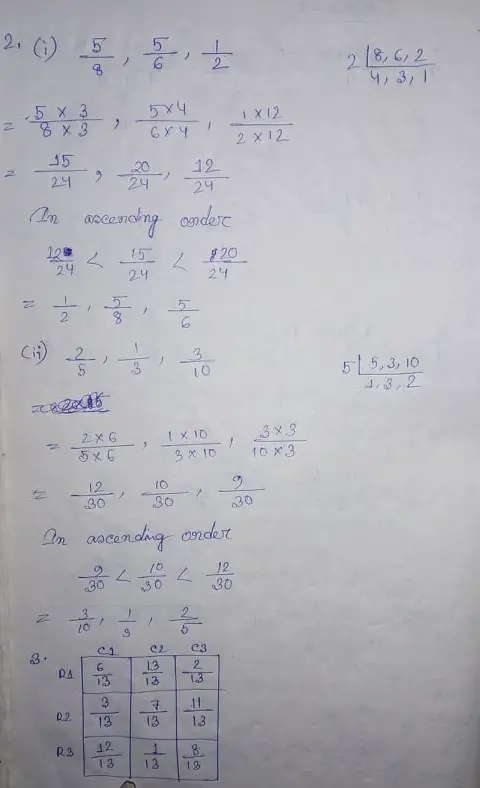 2. (i) 5/8 , 5/6 , 1/2
2 | 8, 6, 2
4, 3, 1
= 5 × 3 / 8 × 3 , 5 × 4 / 6 × 4 , 1 × 12 / 2 × 12
= 15/24 , 20/24 , 12/24
In ascending order
12/24 < 15/24 < 20/24
= 1/2 , 5/8 , 5/6
(ii) 2/5 , 1/3 , 3/10
5 | 5, 3, 10
1, 3, 2
= 2 × 6 / 5 × 6 , 1 × 10 / 3 × 10 , 3 × 3 / 10 × 3
= 12/30 , 10/30 , 9/30
In ascending order
9/30 < 10/30 < 12/30
= 3/10 , 1/3 , 2/5
3. C1 C2 C3
R1 6/13 13/13 2/13
R2 3/13 7/13 11/13
R3 12/13 1/13 8/13